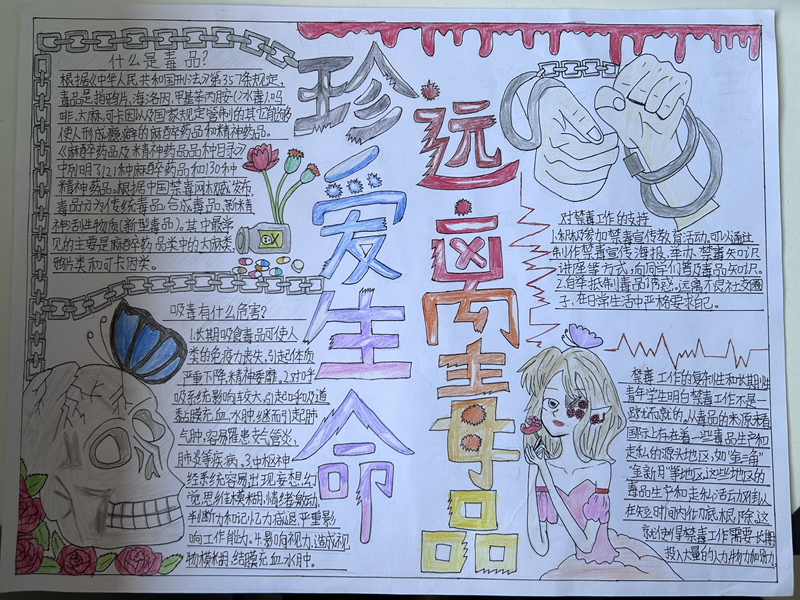 珍爱生命
远离毒品
什么是毒品？
根据《中华人民共和国刑法》第357条规定，
毒品是指鸦片、海洛因、甲基苯丙胺(冰毒)、吗
啡、大麻、可卡因以及国家规定管制的其它能够
使人形成瘾癖的麻醉药品和精神药品。
《麻醉药品及精神药品品种目录》
中列明了121种麻醉药品和130种
精神药品。根据中国禁毒网权威发布
毒品分为传统毒品、合成毒品、新精
神活性物质(新型毒品)。其中最常
见的主要是麻醉药品类中的大麻类
鸦片类和可卡因类。
吸毒有什么危害？
1.长期吸食毒品可使人
类的免疫力丧失，引起体质
严重下降，精神萎靡。2.对呼
吸系统影响较大，引起呼吸道
黏膜充血、水肿，继而引起肺
气肿，容易罹患支气管炎，
肺炎等疾病。3.中枢神
经系统容易出现妄想、幻
觉、思维模糊，情绪激动，
判断力和记忆力减退，严重影
响工作能力。4.影响视力，造成视
物模糊，结膜充血、水肿。
对禁毒工作的支持
1.积极参加禁毒宣传教育活动，可以通过
制作禁毒宣传海报、举办禁毒知识
讲座等方式，向同学们普及毒品知识。
2.自觉抵制毒品诱惑，远离不良社交圈
子，在日常生活中严格要求自己。
禁毒工作的复杂性和长期性
青年学生明白禁毒工作不是一
蹴而就的，从毒品的来源来看
国际上存在着一些毒品生产和
走私的源头地区，如“金三角”
“金新月”等地区，这些地区的
毒品生产和走私活动难以
在短时间内彻底根除，这
就使得禁毒工作需要长期
投入大量的人力、物力和财力。